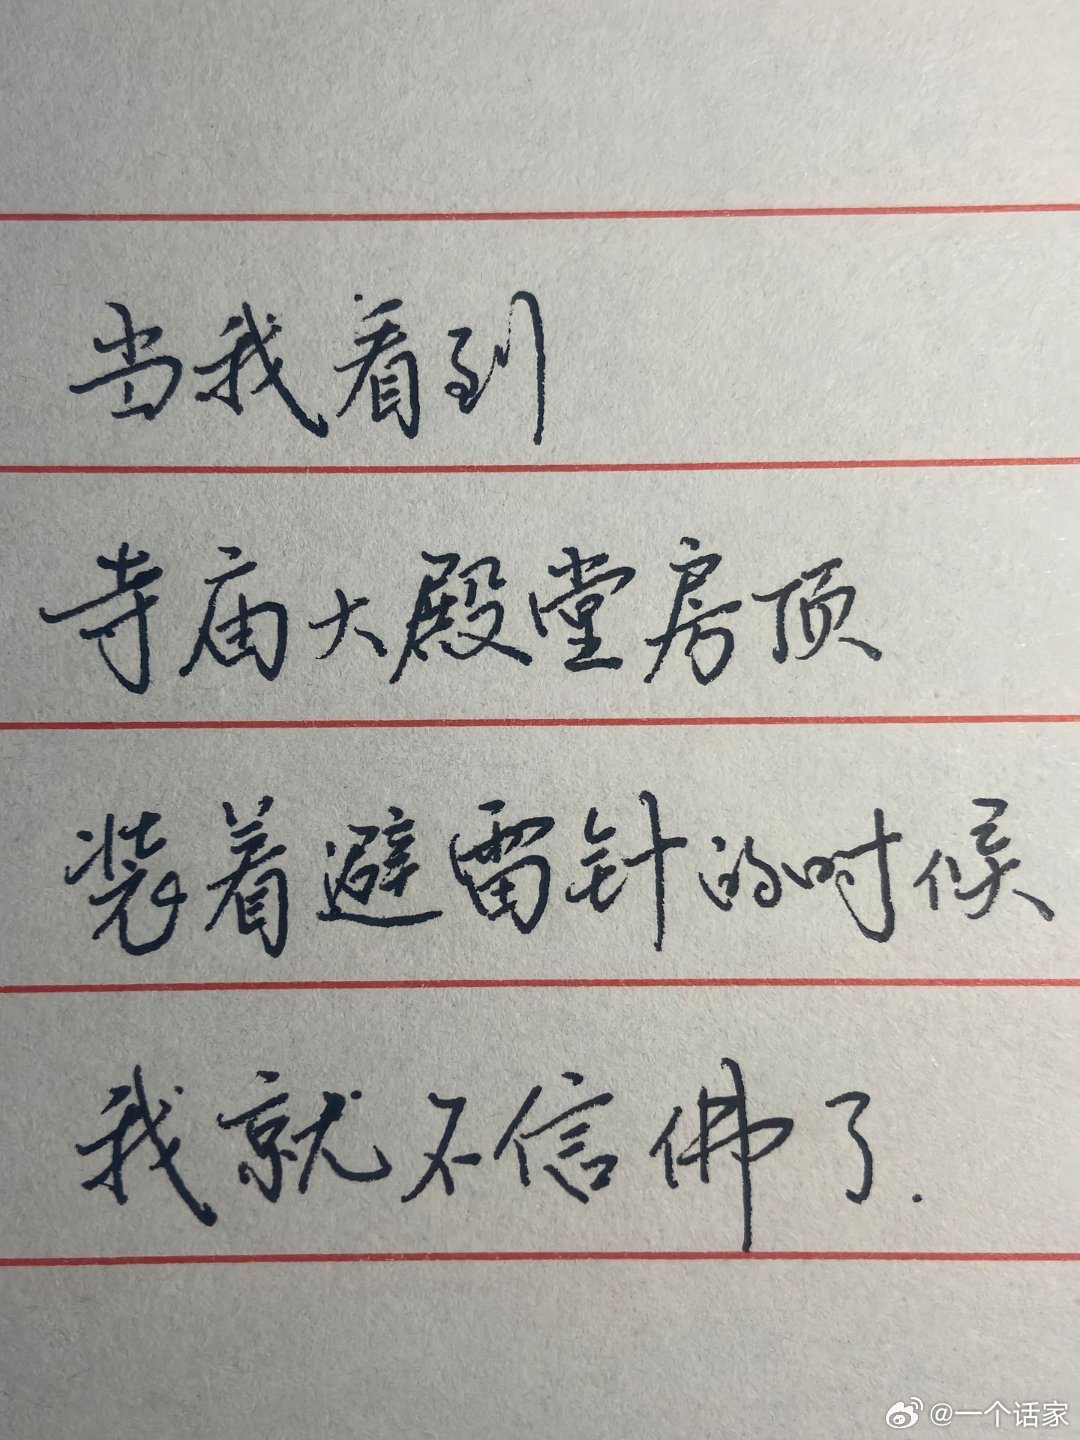 当我看到
寺庙大殿堂房顶
装着避雷针的时候
我就不信佛了.
@一个话家